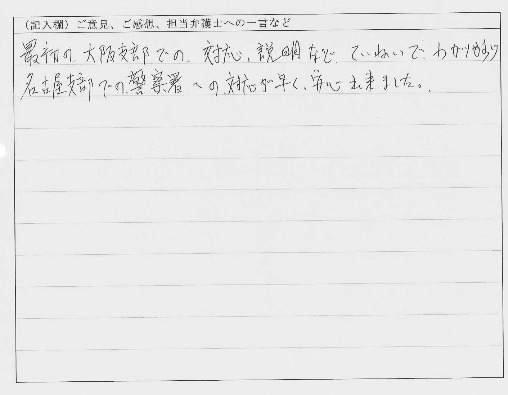 (記入欄) ご意見、ご感想、担当弁護士への一言など
最初の大阪支部での対応、説明など、ていねいでわかりやすく
名古屋支部での警察署への対応が早く、安心出来ました。